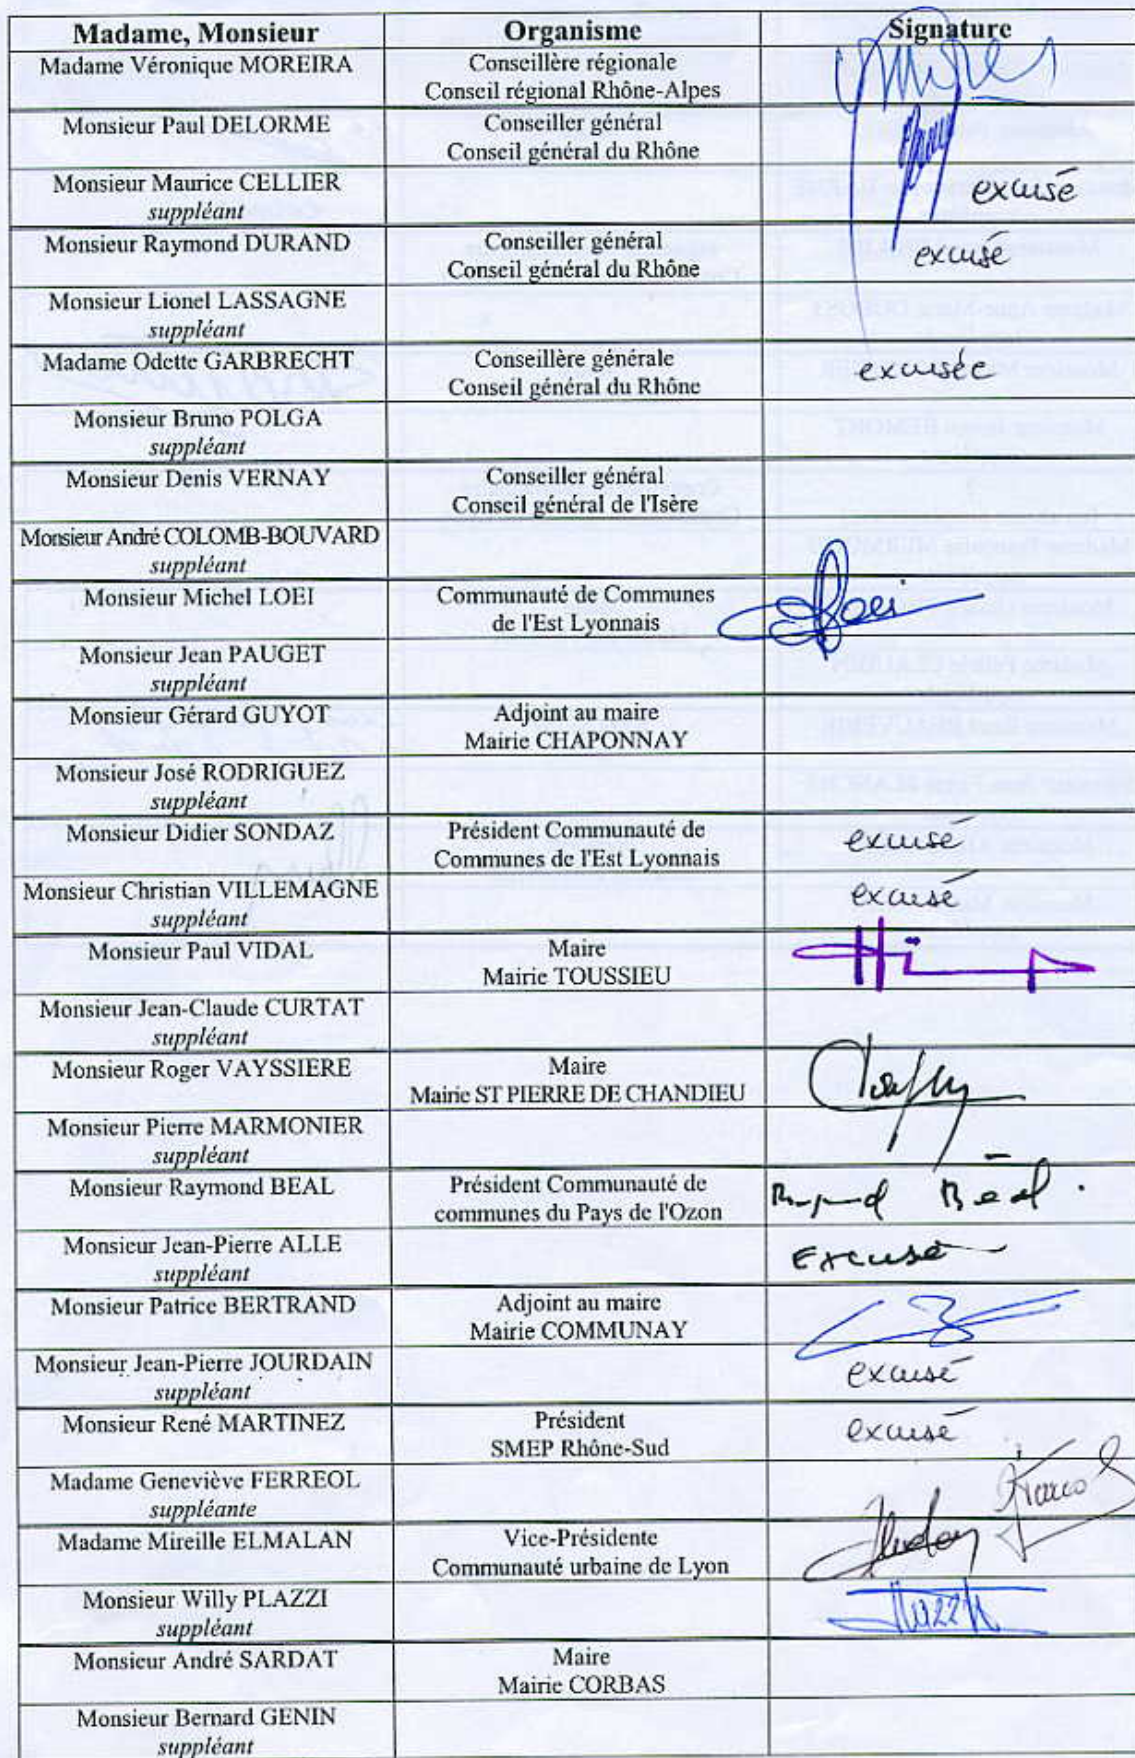 Madame, Monsieur Organisme Signature
Madame Véronique MOREIRA Conseillère régionale
Conseil régional Rhône-Alpes
Monsieur Paul DELORME Conseiller général
Conseil général du Rhône
Monsieur Maurice CELLIER excusé
suppléant
Monsieur Raymond DURAND Conseiller général excusé
Conseil général du Rhône
Monsieur Lionel LASSAGNE
suppléant
Madame Odette GARBRECHT Conseillère générale excusée
Conseil général du Rhône
Monsieur Bruno POLGA
suppléant
Monsieur Denis VERNAY Conseiller général
Conseil général de l'Isère
Monsieur André COLOMB-BOUVARD
suppléant
Monsieur Michel LOEI Communauté de Communes Loei
de l'Est Lyonnais
Monsieur Jean PAUGET
suppléant
Monsieur Gérard GUYOT Adjoint au maire
Mairie CHAPONNAY
Monsieur José RODRIGUEZ
suppléant
Monsieur Didier SONDAZ Président Communauté de excusé
Communes de l'Est Lyonnais
Monsieur Christian VILLEMAGNE excusé
suppléant
Monsieur Paul VIDAL Maire
Mairie TOUSSIEU
Monsieur Jean-Claude CURTAT
suppléant
Monsieur Roger VAYSSIERE Maire
Mairie ST PIERRE DE CHANDIEU
Monsieur Pierre MARMONIER
suppléant
Monsieur Raymond BEAL Président Communauté de Béal
communes du Pays de l'Ozon
Monsieur Jean-Pierre ALLE Excusé
suppléant
Monsieur Patrice BERTRAND Adjoint au maire
Mairie COMMUNAY
Monsieur Jean-Pierre JOURDAIN excusé
suppléant
Monsieur René MARTINEZ Président excusé
SMEP Rhône-Sud
Madame Geneviève FERREOL
suppléante
Madame Mireille ELMALAN Vice-Présidente
Communauté urbaine de Lyon
Monsieur Willy PLAZZI
suppléant
Monsieur André SARDAT Maire
Mairie CORBAS
Monsieur Bernard GENIN
suppléant